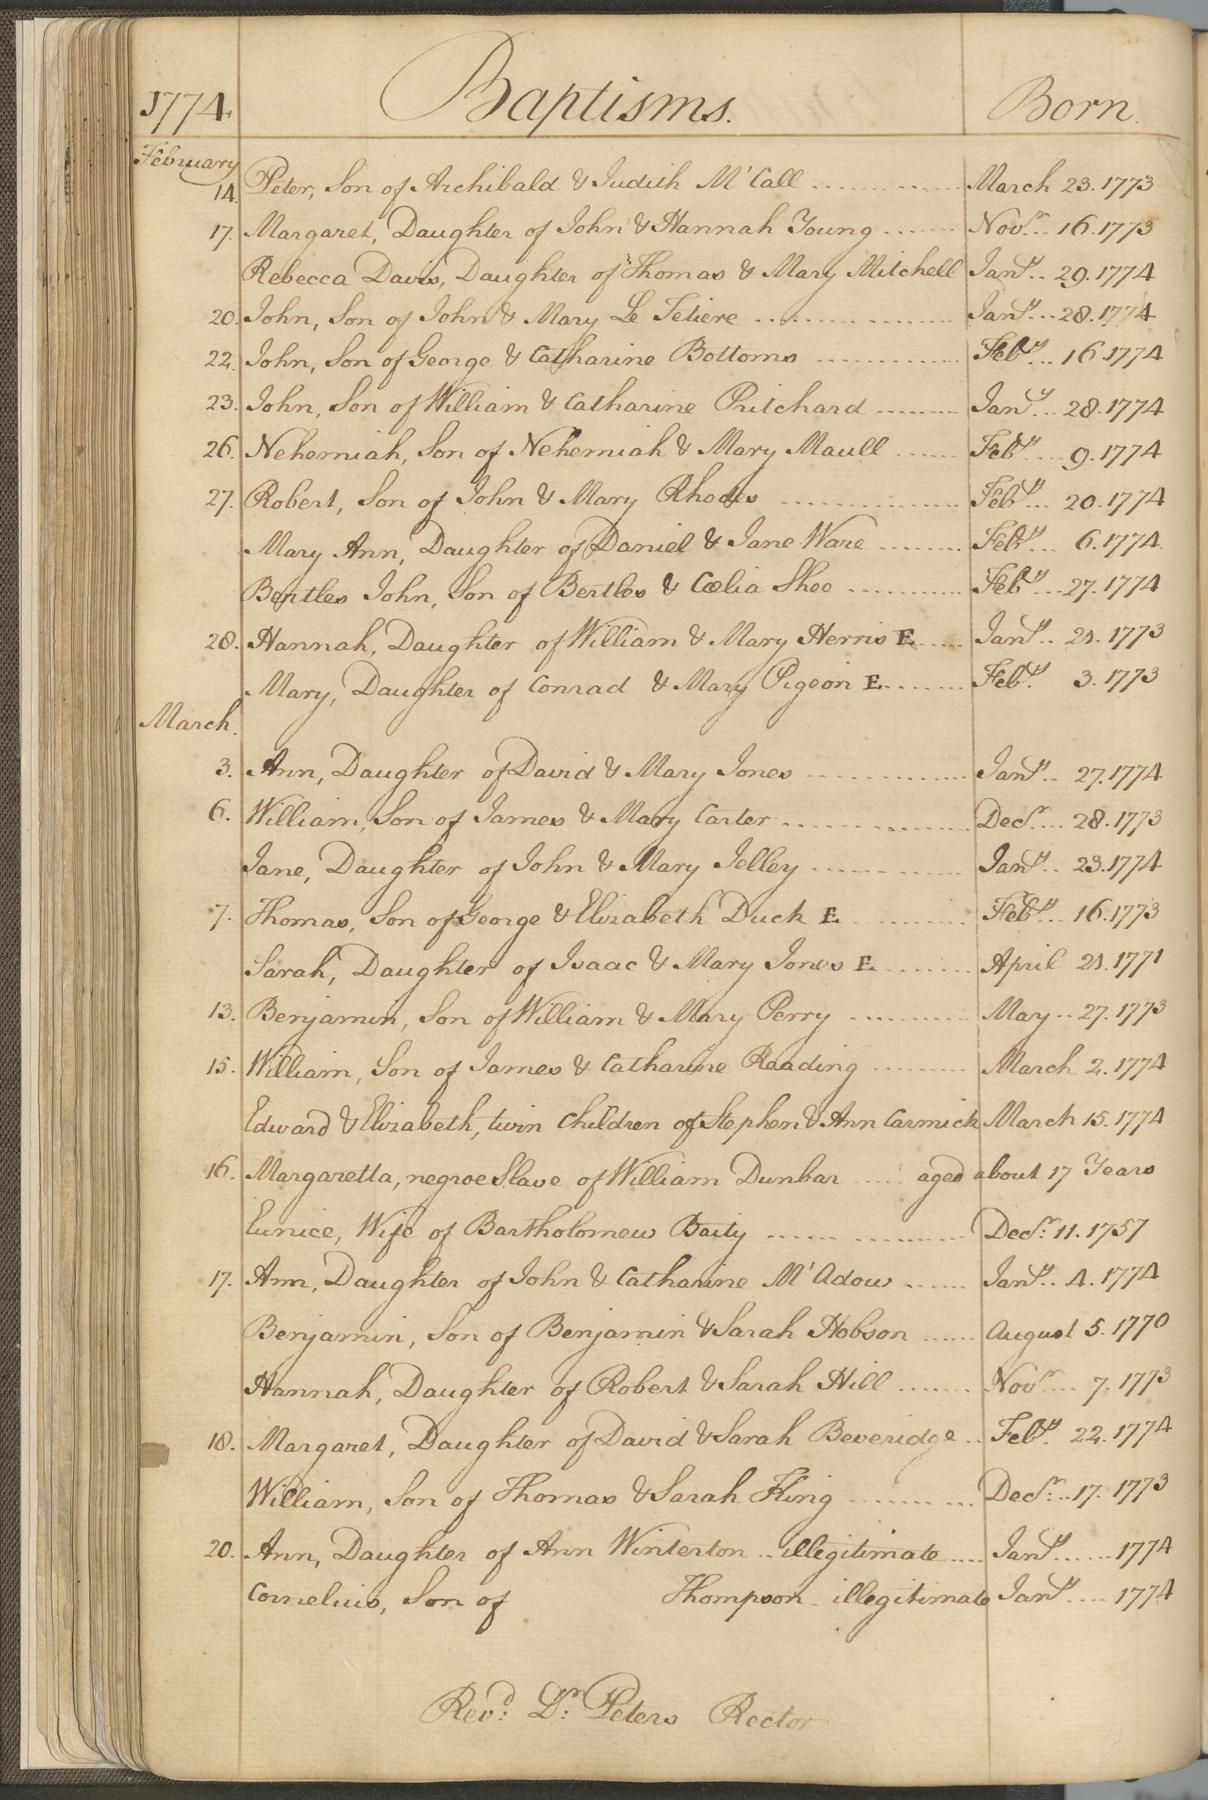 1774 Baptisms. Born.
February
14. Peter, Son of Archibald & Judith M'Call ............. March 23. 1773
17. Margaret, Daughter of John & Hannah Young ....... Novr... 16. 1773
Rebecca Davis, Daughter of Thomas & Mary Mitchell Jany.. 29. 1774
20. John, Son of John & Mary Le Teliere .................. Jany... 28. 1774
22. John, Son of George & Catharine Bottoms ............. Feby... 16. 1774
23. John, Son of William & Catharine Pritchard ......... Jany... 28. 1774
26. Nehemiah, Son of Nehemiah & Mary Maull ...... Feby.... 9. 1774
27. Robert, Son of John & Mary Rhodes ................ Feby... 20. 1774
Mary Ann, Daughter of Daniel & Jane Ware ......... Feby.... 6. 1774
Bertles John, Son of Bertles & Cœlia Shee ........... Feby ....27. 1774
28. Hannah, Daughter of William & Mary Herris E..... Jany.. 21. 1773
Mary, Daughter of Conrad & Mary Pigeon E......... Feby. 3. 1773
March.
3. Ann, Daughter of David & Mary Jones .............. Jany... 27. 1774
6. William, Son of James & Mary Carter ................ Decr.... 28. 1773
Jane, Daughter of John & Mary Jelley ............. Jany... 23. 1774
7. Thomas, Son of George & Elizabeth Duck E .......... Feby... 16. 1773
Sarah, Daughter of Isaac & Mary Jones E......... April 21. 1771
13. Benjamin, Son of William & Mary Perry .......... May... 27. 1773
15. William, Son of James & Catharine Reading ......... March 2. 1774
Edward & Elizabeth, twin Children of Stephen & Ann Carmick March 15. 1774
16. Margaretta, negroe Slave of William Dunbar ..... aged about 17 Years
Eunice, Wife of Bartholomew Baity ................ Decr. 11. 1757
17. Ann, Daughter of John & Catharine M'Adow ...... Jany.. 4. 1774
Benjamin, Son of Benjamin & Sarah Hobson ...... August 5. 1770
Hannah, Daughter of Robert & Sarah Hill ....... Novr.... 7. 1773
18. Margaret, Daughter of David & Sarah Beveridge .. Feby. 22. 1774
William, Son of Thomas & Sarah Fling ........... Decr...17. 1773
20. Ann, Daughter of Ann Winterton .. illegitimate..... Jany...... 1774
Cornelius, Son of Thompson . illegitimate Jany .... 1774
Revd. Dr. Peters Rector